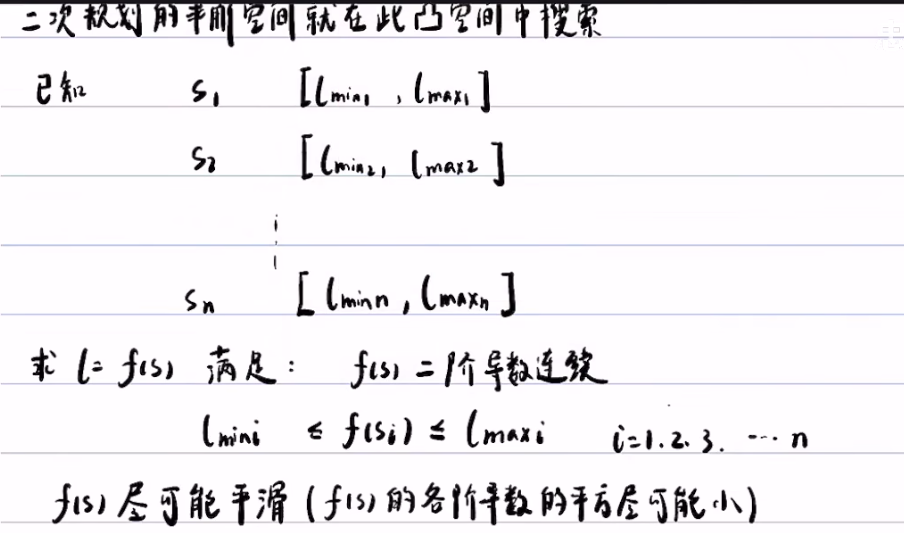 二次规划的求解空间就在此凸空间中搜索
已知 s₁ [lmin₁, lmax₁]
s₂ [lmin₂, lmax₂]
⋮
sₙ [lminₙ, lmaxₙ]
求 l = f(s) 满足: f(s) 二阶导数连续
lminᵢ ≤ f(sᵢ) ≤ lmaxᵢ i=1.2.3. ⋯ n
f(s) 尽可能平滑 (f(s) 的各阶导数的平方尽可能小)